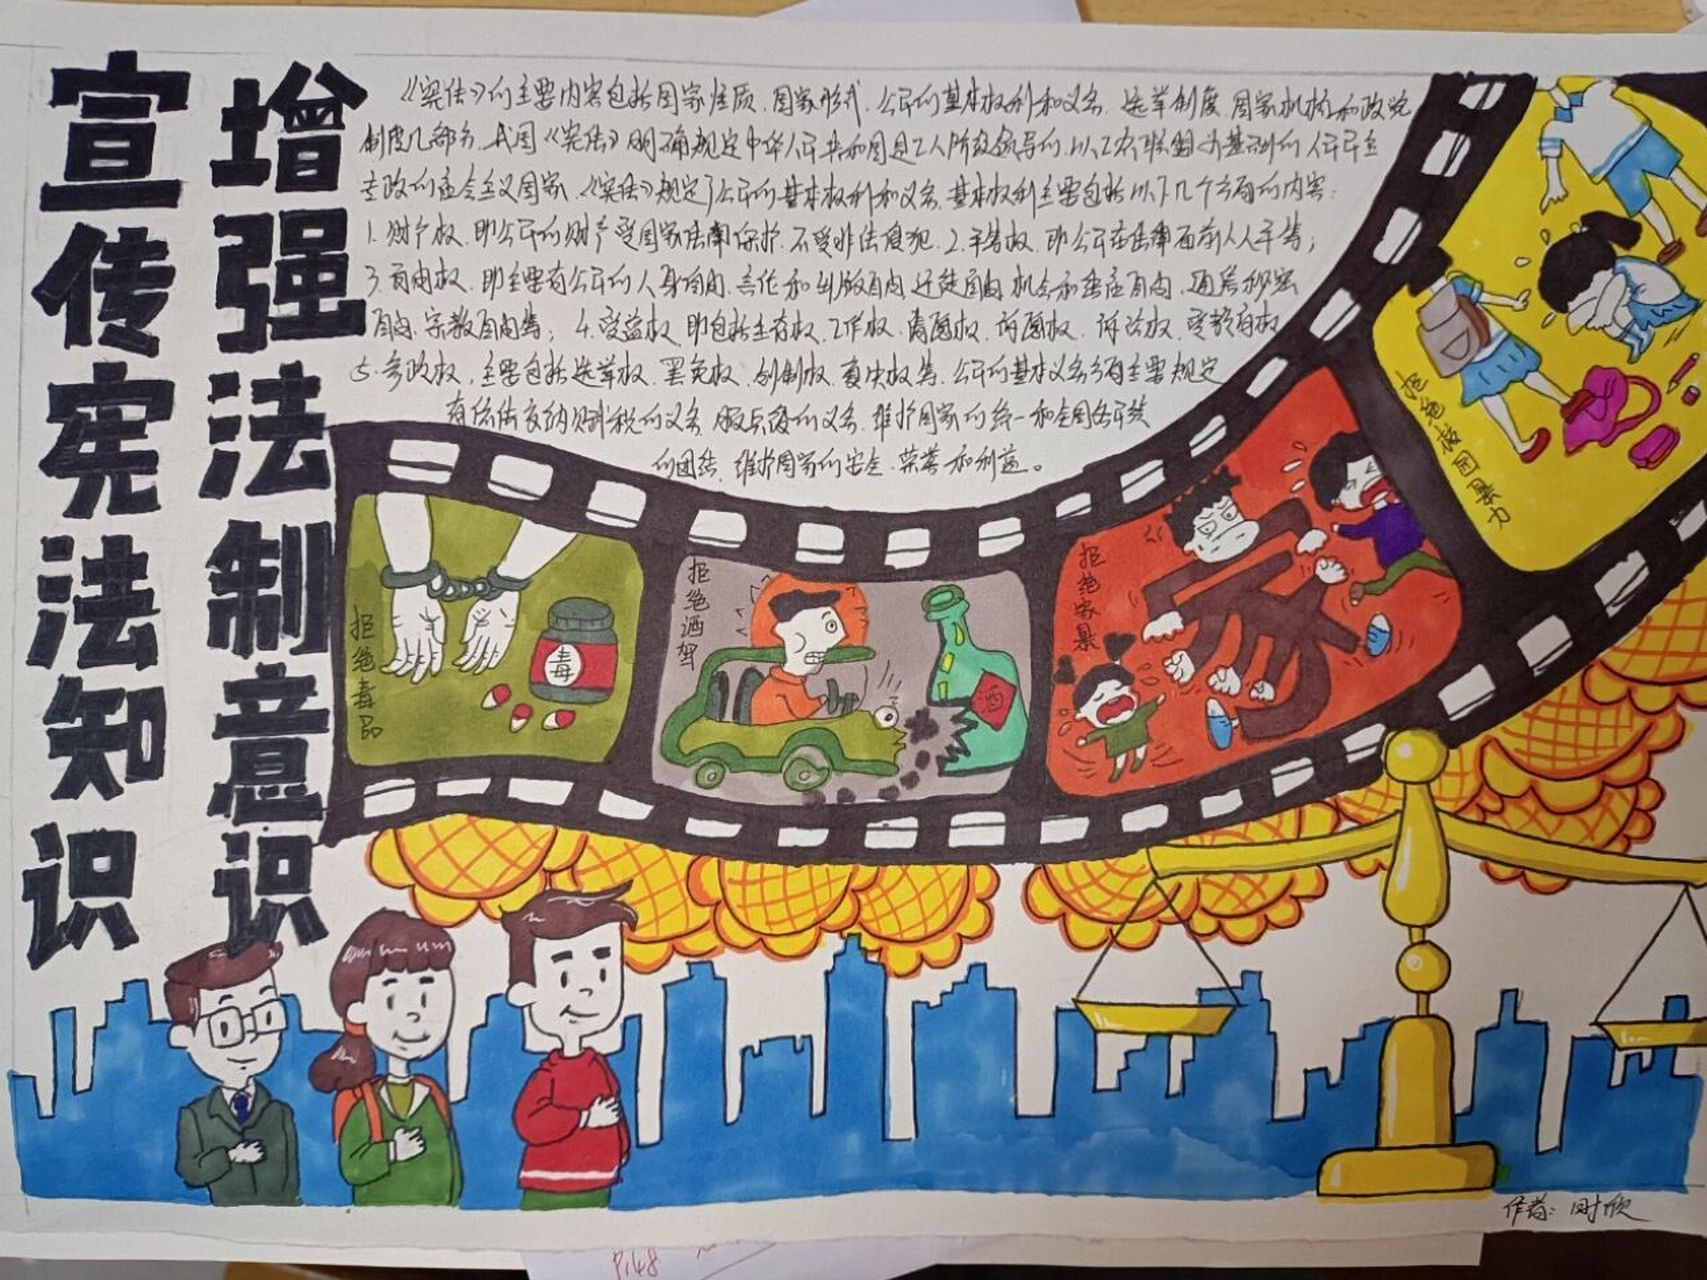 增强法制意识
宣传宪法知识
《宪法》的主要内容包括国家性质、国家形式、公民的基本权利和义务、选举制度、国家机构和政党
制度几部分、我国《宪法》明确规定中华人民共和国是工人阶级领导的、以工农联盟为基础的人民民主
专政的社会主义国家、《宪法》规定了公民的基本权利和义务、基本权利主要包括以下几个方面的内容:
1. 财产权、即公民的财产受国家法律保护、不受非法侵犯、2. 平等权、即公民在法律面前人人平等;
3. 自由权、即主要有公民的人身自由、言论和出版自由、迁徙自由、机会和 自由、通信秘密
自由、宗教自由等; 4. 受益权、即包括生存权、工作权、请愿权、诉愿权、诉讼权、受教育权
5. 参政权, 主要包括选举权、罢免权、创制权、复决权等、公民的基本义务有主要规定
有依法交纳赋税的义务 服兵役的义务、维护国家的统一和全国各民族
的团结、维护国家的安全、荣誉和利益。
拒绝校园暴力
拒绝毒品
毒
拒绝酒驾
酒
拒绝家暴
家
作者: 时欣
P.48